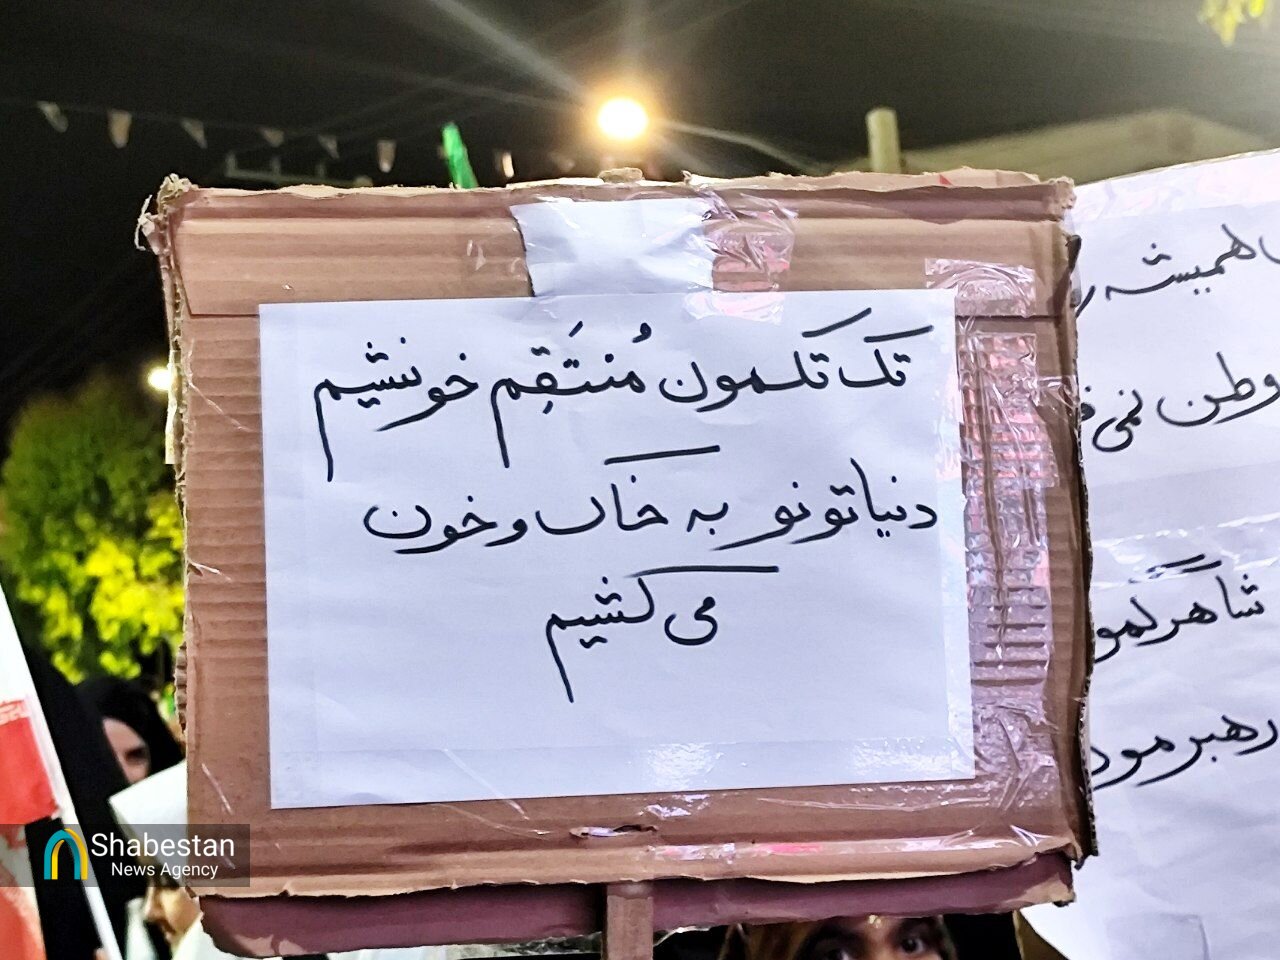 تک تکمون مُنتَقِم خونشیم
دنیاتونو به خاک و خون
می کشیم
همیشه
وطن نمی
شاه
رهبر مون
Shabestan
News Agency